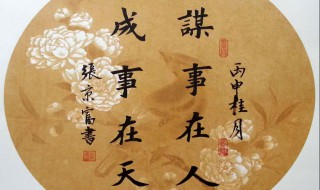 丙申桂月
謀事在人
成事在天
張京富書